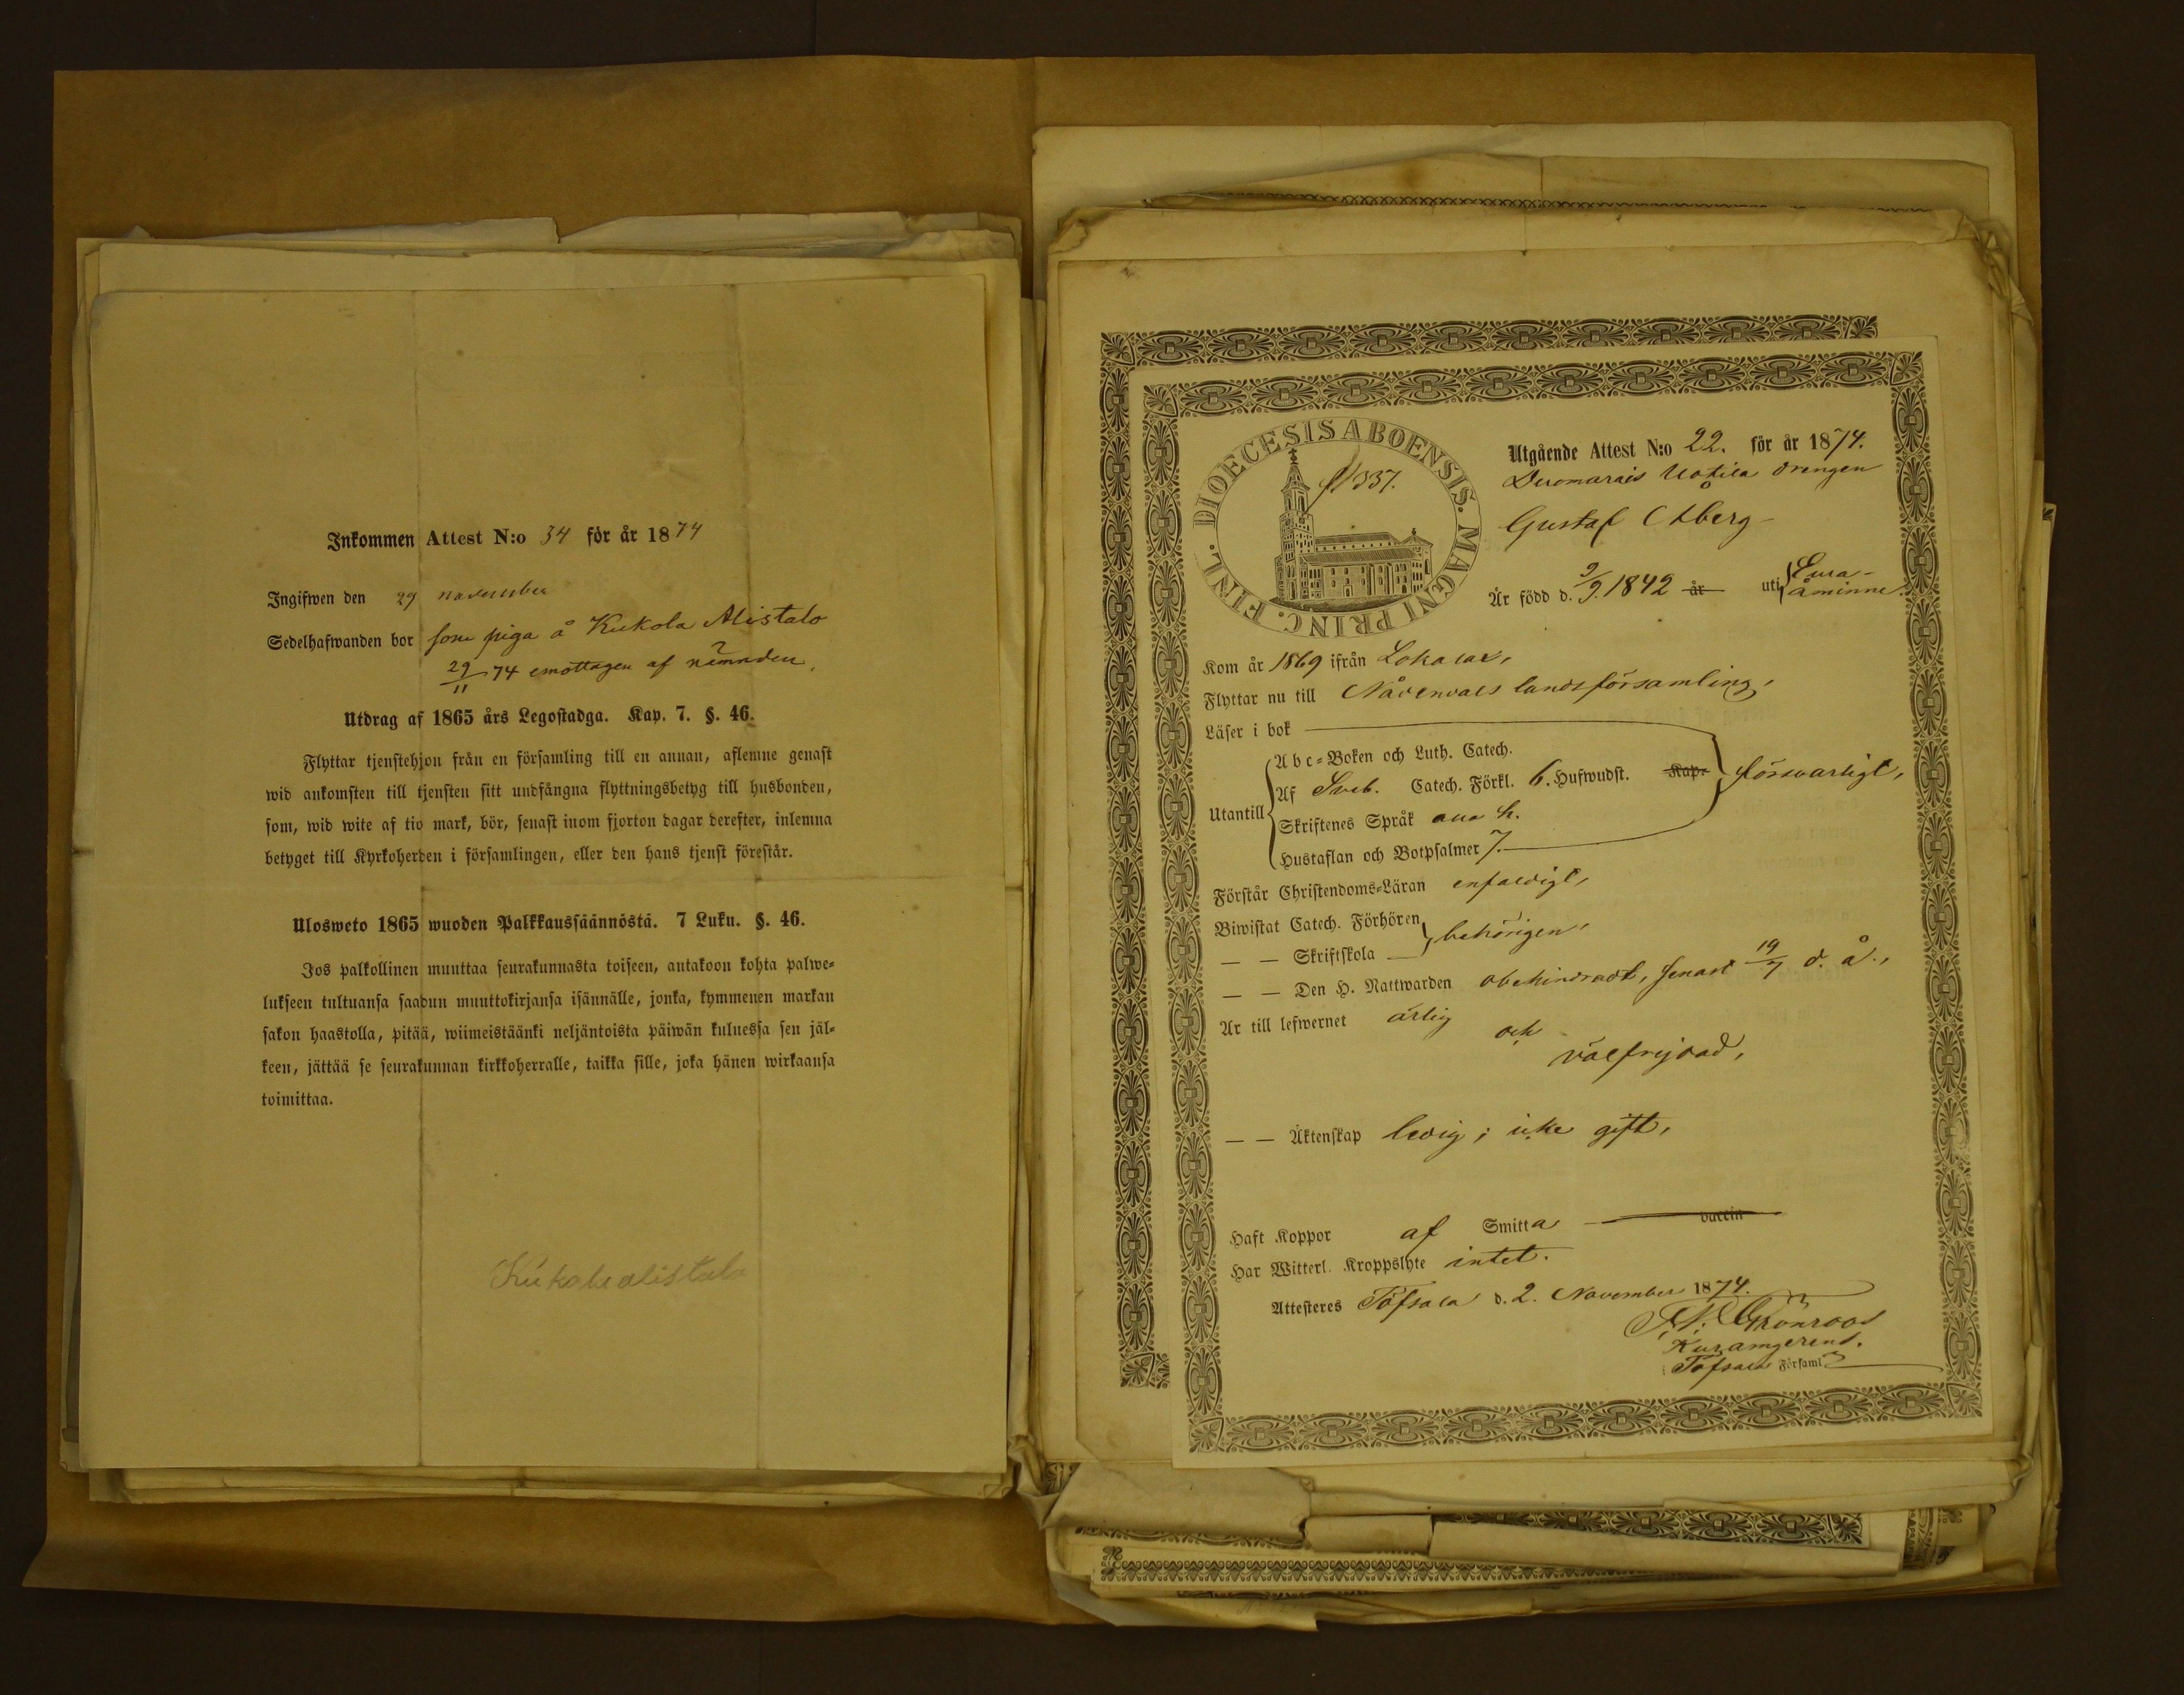 Inkommen Attest N:o 34 för år 1874
Ingifwen den 29 november
Sedelhafwanden bor som piga å Kukola Alistalo
29/11 74 emottagen af nämnden.
Utdrag af 1865 års Legostadga. Kap. 7. §. 46.
Flyttar tjenstehjon från en församling till en annan, aflemne genast
wid ankomsten till tjensten sitt undfångna flyttningsbetyg till husbonden,
som, wid wite af tio mark, bör, senast inom fjorton dagar derefter, inlemna
betyget till Kyrkoherden i församlingen, eller den hans tjenst förestår.
Ulosweto 1865 wuoden Palkkaussäännöstä. 7 Luku. §. 46.
Jos palkollinen muuttaa seurakunnasta toiseen, antakoon kohta palwe-
lukseen tultuansa saadun muuttokirjansa isännälle, jonka, kymmenen markan
sakon haastolla, pitää, wiimeistäänki neljäntoista päiwän kuluessa sen jäl-
keen, jättää se seurakunnan kirkkoherralle, taikka sille, joka hänen wirkaansa
toimittaa.
Kukola alistalo
DIOECESIS ABOENSIS. MAGNI PRINC. FINL.
337.
Utgående Attest N:o 22. för år 1874.
Duomarais Uotila drengen
Gustaf Åberg
Är född d. 9/9. 1842 år uti Eura-
åminne.
Kom år 1869 ifrån Lokalax,
Flyttar nu till Nådendals landsförsamling,
Läser i bok
Abc-Boken och Luth. Catech.
Utantill Af Sveb. Catech. Förkl. 6. Hufwudst. Kap. försvarligt,
Skriftenes Språk alla h.
Hustaflan och Botpsalmer 7.
Förstår Christendoms-Läran enfaldigt,
Biwistat Catech. Förhören behörigen,
— — Skriftskola
— — Den H. Nattwarden obehindradt, senast 19/7 d. å.,
Är till lefwernet ärlig och
välfrejdad,
— — Äktenskap ledig; icke gift,
Haft Koppor af Smitta vaccin
Har Witterl. Kroppslyte intet.
Attesteres Töfsala d. 2. November 1874.
Grönroos
Kur. amgerend.
Töfsala Församl.